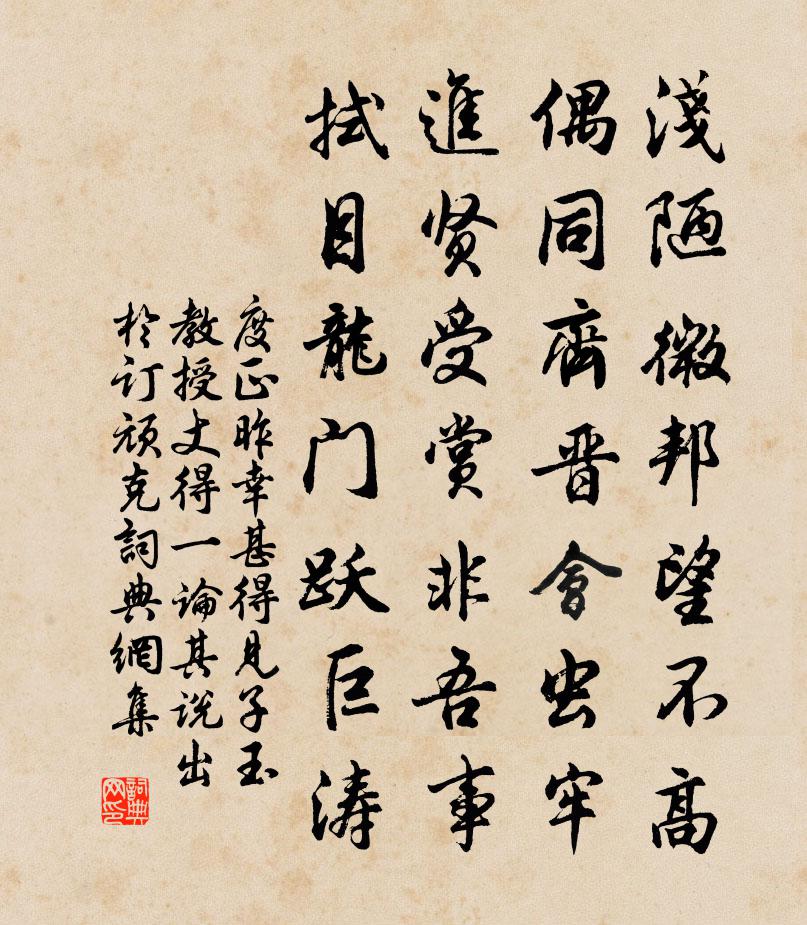 淺陋微邦望不高
偶同齊晋會虫牢
進贤受賞非吾事
拭目龍门跃巨涛
度正昨幸甚得見子玉
教授丈得一論其说出
於订顽克詞典網集
詞典网印